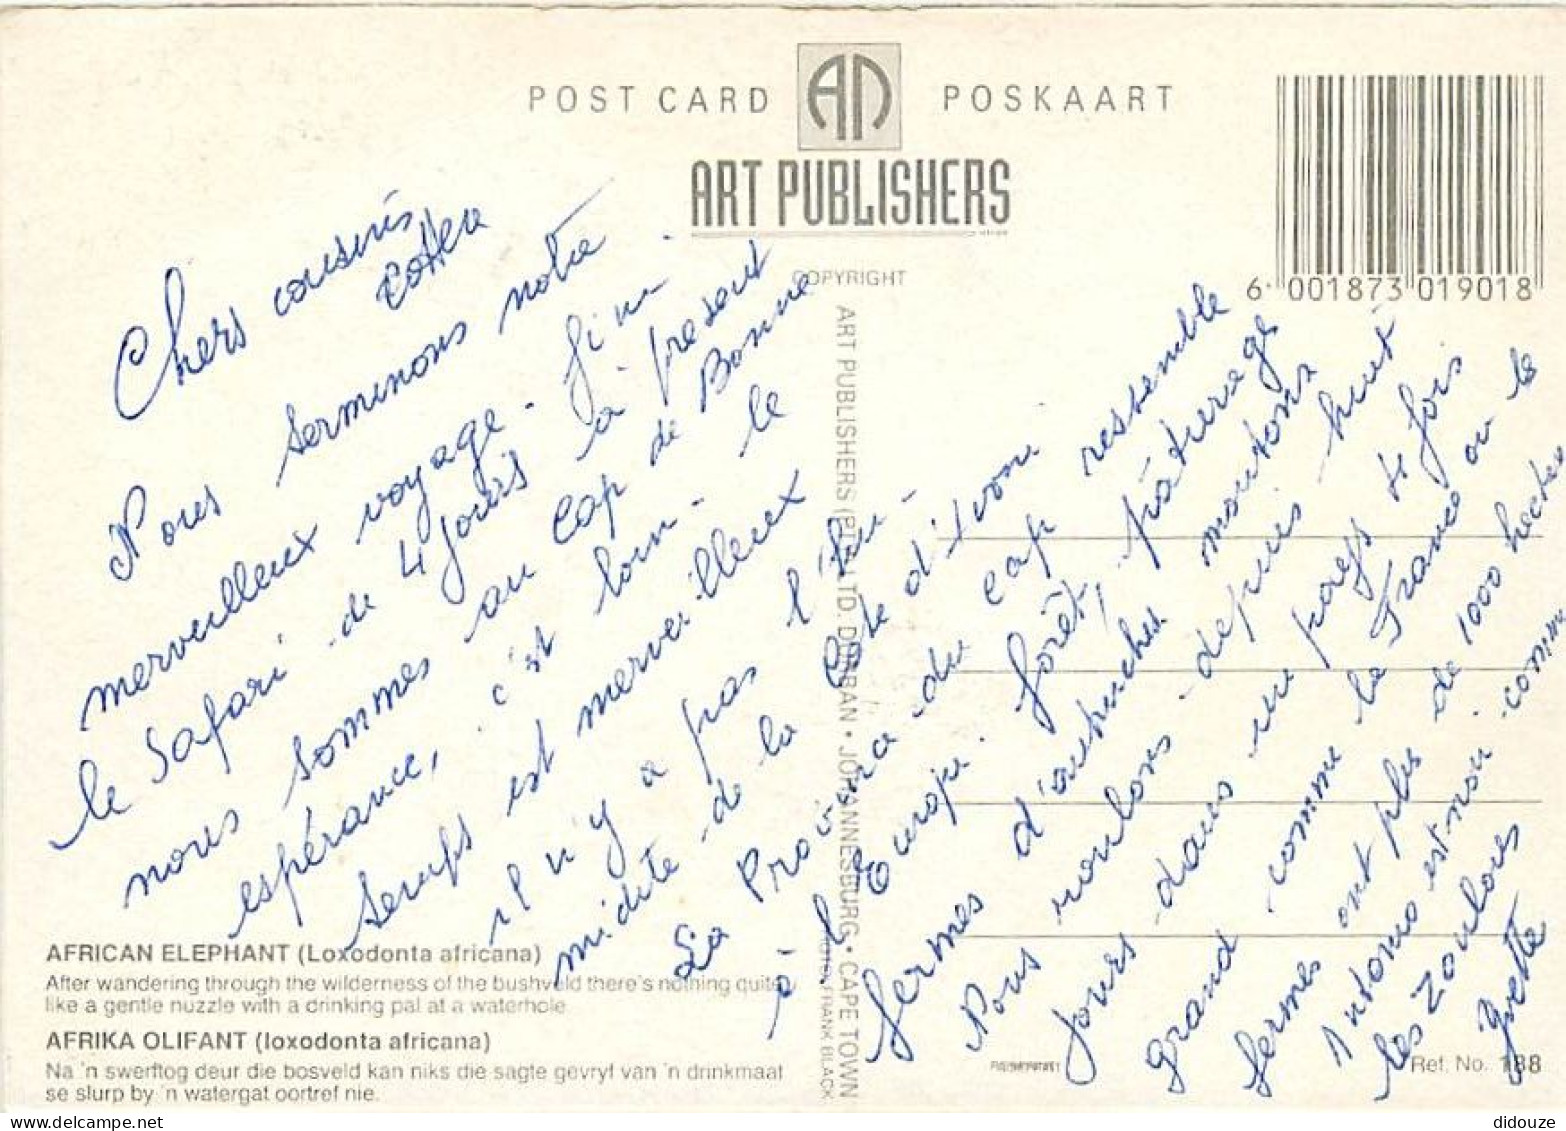 POST CARD AN POSKAART
ART PUBLISHERS
COPYRIGHT
6 001873 019018
ART PUBLISHERS (PTY) LTD. DURBAN • JOHANNESBURG • CAPE TOWN
FRANK BLACK
Chers cousins
Nous terminons notre
merveilleux voyage. fini
le Safari de 4 jours à présent
nous sommes au Cap de Bonne
espérance, c'est loin. le
temps est merveilleux
il n'y a pas l'hu-
midité de la Côte d'Ivoire
La Province du Cap ressemble
à l'Europe. forêt, pâturage
fermes d'autruches moutons
Nous roulons depuis huit
jours dans un pays 4 fois
grand comme la France où les
fermes ont plus de 1000 hectares
Antonio est noir comme
les Zoulous
Yvette
AFRICAN ELEPHANT (Loxodonta africana)
After wandering through the wilderness of the bushveld there's nothing quite
like a gentle nuzzle with a drinking pal at a waterhole.
AFRIKA OLIFANT (loxodonta africana)
Na 'n swerftog deur die bosveld kan niks die sagte gevryf van 'n drinkmaat
se slurp by 'n watergat oortref nie.
Ref. No. 188
didouze